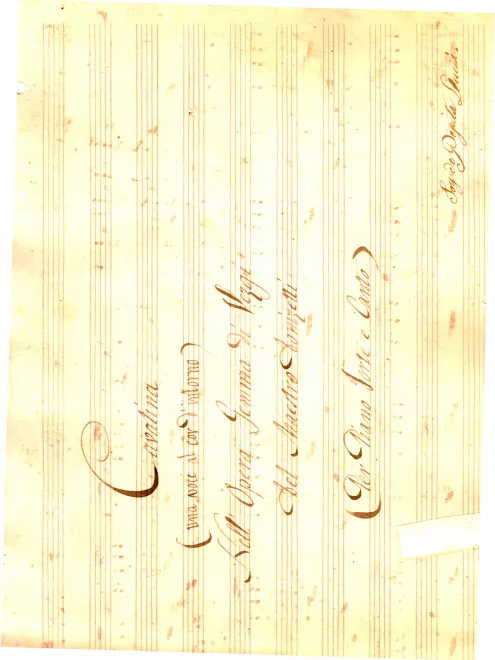 Cavatina
(una voce al cor d'intorno)
Nell'Opera Gemma di Vergi
del Maestro Donizetti
(Per Piano Forte e Canto)
Soy de Pepita